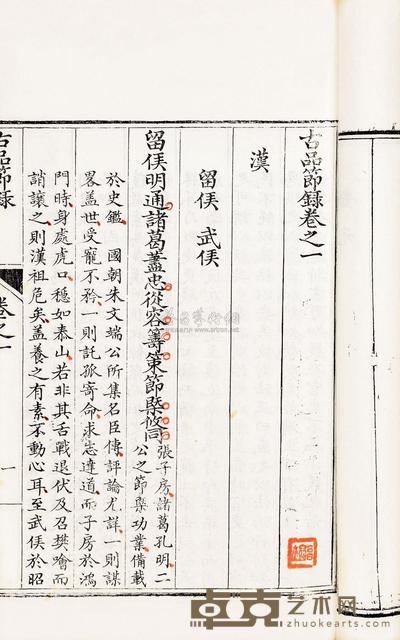 古品節錄卷之一
漢
留侯 武侯
留侯明通諸葛藎忠從容籌策節槩攸同張子房諸葛孔明二
公之節槩功業備載
於史鑑 國朝朱文端公所集名臣傳評論尤詳一則謀
畧蓋世受寵不矜一則託孤寄命求志達道而子房於鴻
門時身處虎口穩如泰山若非其舌戰退伏及召樊噲而
誚讓之則漢祖危矣蓋養之有素不動心耳至武侯於昭
古品節錄
卷之一
一
卓克艺术网
www.zhuokearts.com